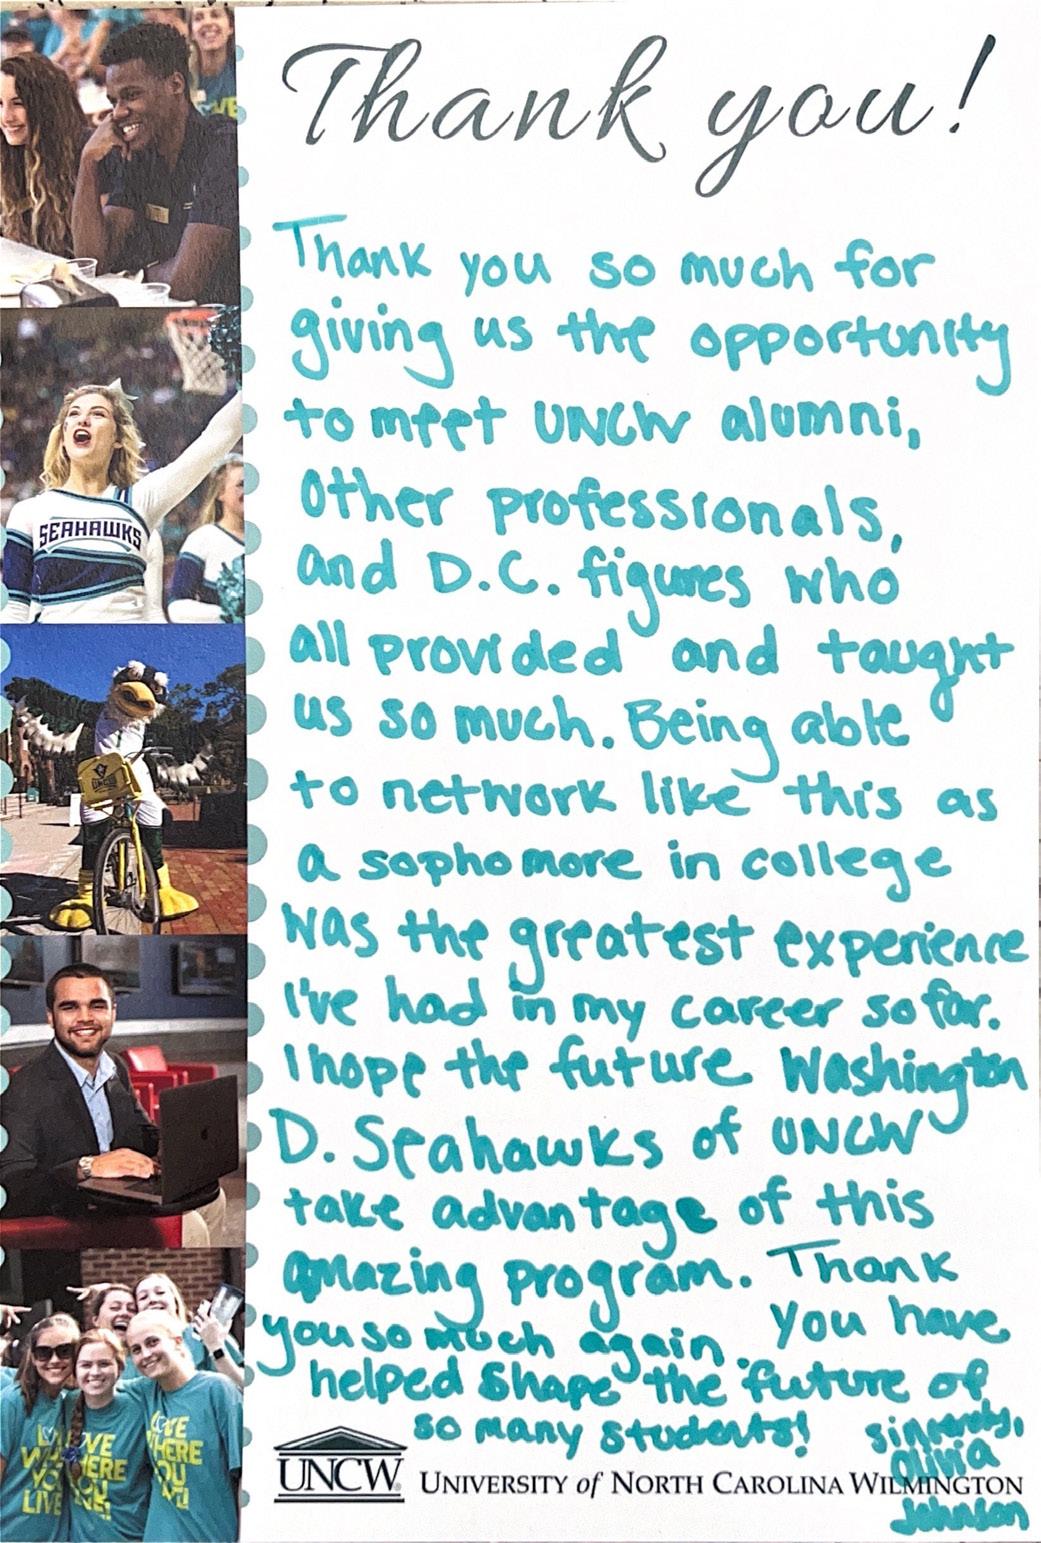 Thank you!
Thank you so much for
giving us the opportunity
to meet UNCW alumni,
Other professionals,
and D.C. figures who
all provided and taught
us so much. Being able
to network like this as
a sophomore in college
was the greatest experience
I've had in my career so far.
I hope the future Washington
D. Seahawks of UNCW
take advantage of this
amazing program. Thank
you so much again. You have
helped shape the future of
so many students! sincerely,
Olivia
Johnson
UNCW UNIVERSITY of NORTH CAROLINA WILMINGTON
SEAHAWKS